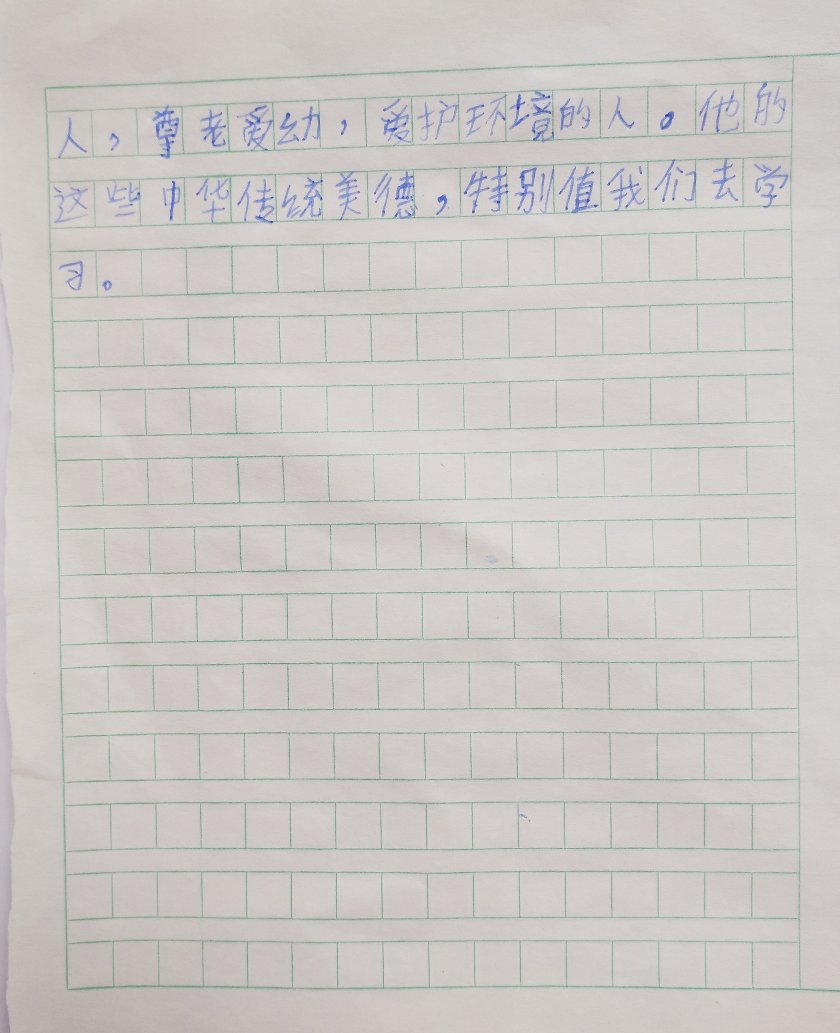 人，尊老爱幼，爱护环境的人。他的
这些中华传统美德，特别值我们去学
习。